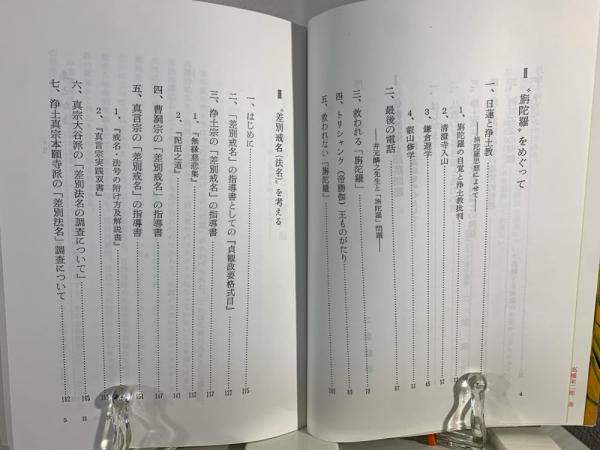 Ⅱ "旃陀羅"をめぐって
一、日蓮と浄土教
――旃陀羅思想によせて――
1、旃陀羅の自覚と浄土教批判
2、清澄寺入山
3、鎌倉遊学 45
4、叡山修学 51
二、最後の電話 67
――井元麟之先生と「旃陀羅」問題――
三、救われる「旃陀羅」 70
四、トリシャンク(帝勝伽)王ものがたり 89
五、救われない「旃陀羅」 101
4
高橋
Ⅲ "差別戒名(法名)"を考える
一、はじめに 115
二、「差別戒名」の指導書としての『貞観政要格式目』 132
三、浄土宗の「差別戒名」の指導書 137
1、『無縁慈悲集』
2、『泥洹之道』 141
四、曹洞宗の「差別戒名」の指導書 147
五、真言宗の「差別戒名」の指導書 154
1、『戒名・法号の附け方及解説書』
2、『真言宗実践双書』
六、真宗大谷派の「差別法名の調査について」 165
七、浄土真宗本願寺派の「差別法名」調査について 182
5